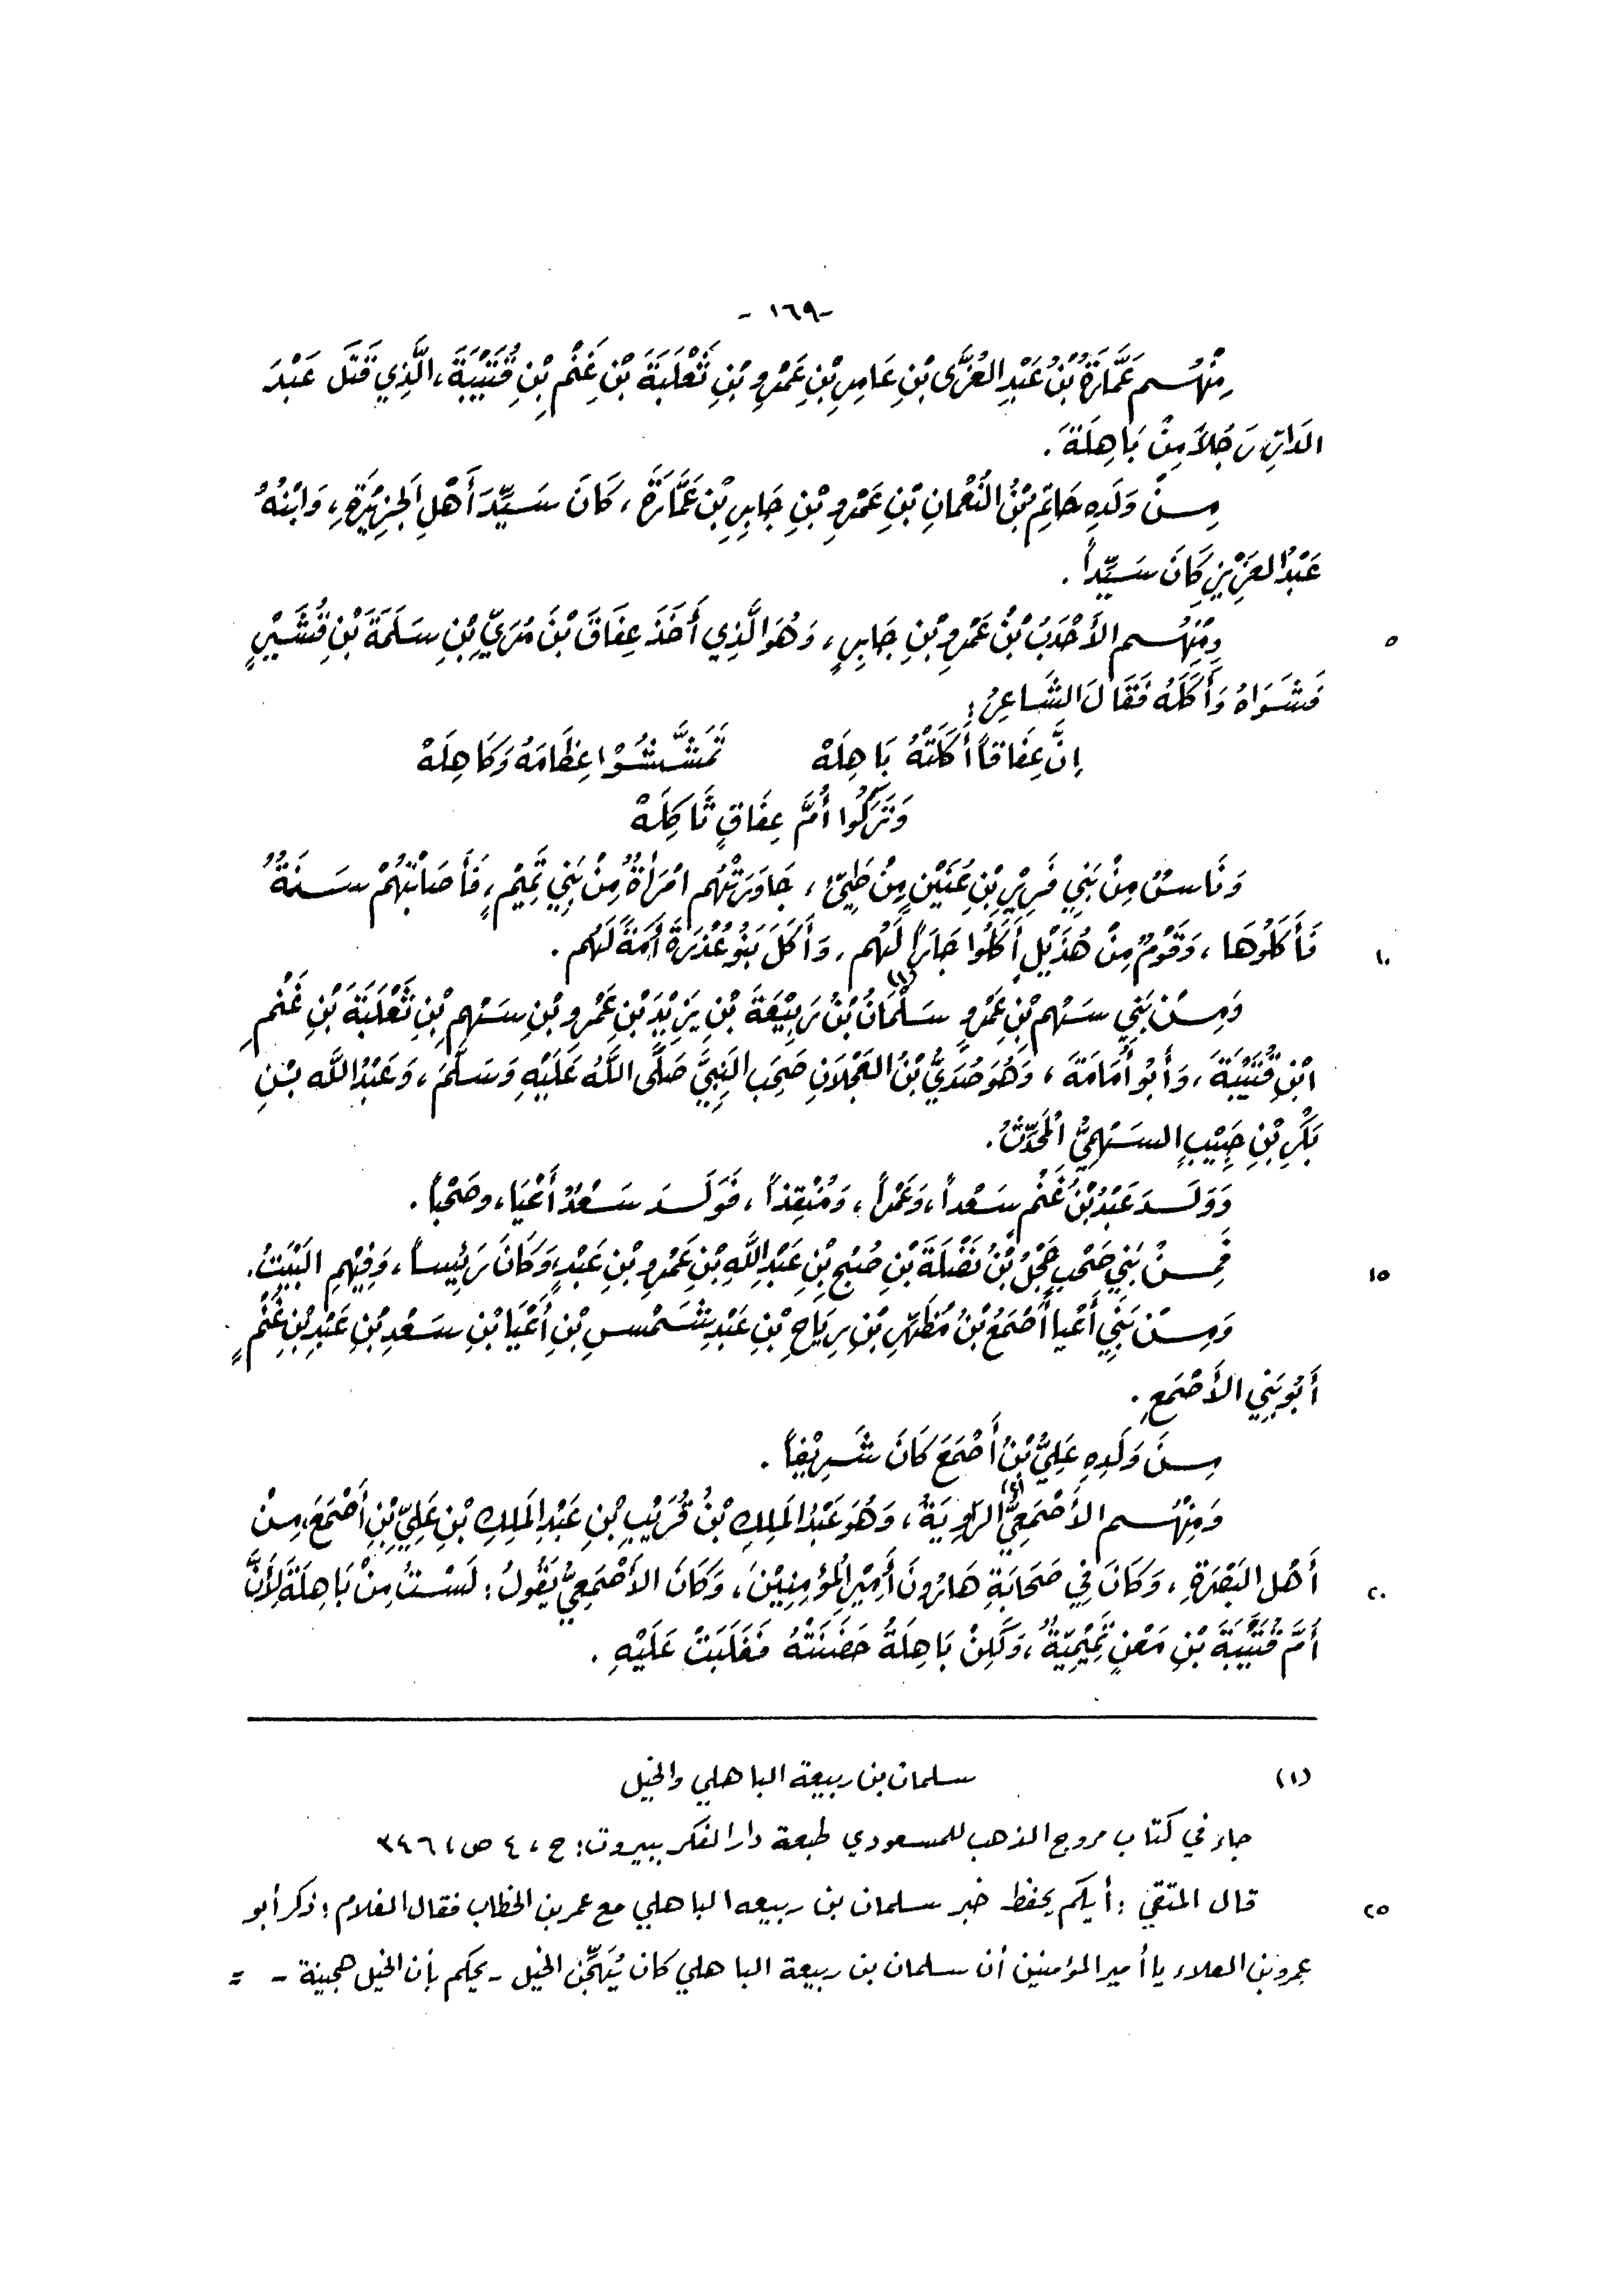 -١٦٩-
مِنْهُم عَمَّارَةُ بْنُ عَبْدِ العُزَّى بْنِ عَامِرِ بْنِ عَمْرِو بْنِ ثَعْلَبَةَ بْنِ غَنْمِ بْنِ قُتَيْبَةَ، الَّذِي قَتَلَ عَبْدَ
الدَارِ رَجُلاً مِنْ بَاهِلَةَ.
مِنْ وَلَدِهِ حَاتِمُ بْنُ النُّعْمَانِ بْنِ عَمْرِو بْنِ جَابِرِ بْنِ عَمَّارَةَ، كَانَ سَيِّدَ أَهْلِ الجَزِيْرَةِ، وَابْنُهُ
عَبْدُ العَزِيْزِ كَانَ سَيِّداً.
٥
وَمِنْهُم الأَحْدَبُ بْنُ عَمْرِو بْنِ جَابِرٍ، وَهُوَ الَّذِي أَخَذَ عِفَاقَ بْنَ مُرَيِّ بْنِ سَلَمَةَ بْنِ قُشَيْرٍ
فَشَوَاهُ وَأَكَلَهُ فَقَالَ الشَّاعِرُ:
إِنَّ عِفَاقاً أَكَلَتْهُ بَاهِلَهْ تَمَشَّشُوْا عِظَامَهُ وَكَاهِلَهْ
وَتَرَكُوا أُمَّ عِفَاقٍ ثَاكِلَهْ
وَنَاسٌ مِنْ بَنِي فَرِيْرِ بْنِ عُنَيْنٍ مِنْ طَيِّئٍ، جَاوَرَتْهُم امْرَأَةٌ مِنْ بَنِي تَمِيْمٍ، فَأَصَابَتْهُمْ سَنَةٌ
١٠
فَأَكَلُوهَا، وَقَوْمٌ مِنْ هُذَيْلٍ أَكَلُوا جَاراً لَهُم، وَأَكَلَ بَنُو عُذْرَةَ أَمَةً لَهُم.
وَمِنْ بَنِي سَهْمِ بْنِ عَمْرٍو سَلْمَانُ (١) بْنُ رَبِيْعَةَ بْنِ يَزِيْدَ بْنِ عَمْرِو بْنِ سَهْمِ بْنِ ثَعْلَبَةَ بْنِ غَنْمِ
ابْنِ قُتَيْبَةَ، وَأَبُو أُمَامَةَ، وَهُوَ صُدَيُّ بْنُ العَجْلَانِ صَحِبَ النَبِيَّ صَلَّى اللَّهُ عَلَيْهِ وَسَلَّمَ، وَعَبْدُ اللَّهِ بْنِ
بَكْرِ بْنِ حَبِيْبٍ السَهْمِيُّ المُحَدِّثُ.
وَوَلَدَ عَبْدُ بْنُ غَنْمٍ سَعْداً، وَعَمْراً، وَمُنْقِذاً، فَوَلَدَ سَعْدٌ أَعْيَا، وصَحْباً.
١٥
فَمِنْ بَنِي صَحْبٍ حَجْلُ بْنُ نَضْلَةَ بْنِ صُبْحِ بْنِ عَبْدِ اللَّهِ بْنِ عَمْرِو بْنِ عَبْدٍ، وَكَانَ رَئِيساً، وَفِيْهِمِ البَيْتُ.
وَمِنْ بَنِي أَعْيَا أَصْمَعُ بْنُ مُظَهِّرِ بْنِ رِيَاحِ بْنِ عَبْدِ شَمْسِ بْنِ أَعْيَا بْنِ سَعْدِ بْنِ عَبْدِ بْنِ غَنْمٍ
أَبُو بَنِي الأَصْمَعِ.
مِنْ وَلَدِهِ عَلِيُّ بْنُ أَصْمَعَ كَانَ شَرِيْفاً.
وَمِنْهُم الأَصْمَعِيُّ (٢) الرَاوِيَةُ، وَهُوَ عَبْدُ المَلِكِ بْنُ قُرَيْبِ بْنِ عَبْدِ المَلِكِ بْنِ عَلِيِّ بْنِ أَصْمَعَ، مِنْ
٢٠
أَهْلِ البَصْرَةِ، وَكَانَ فِي صَحَابَةِ هَارُونَ أَمِيْرِ المُؤمِنِيْنَ، وَكَانَ الأَصْمَعِيُّ يَقُولُ: لَسْتُ مِنْ بَاهِلَةَ لِأَنَّ
أُمَّ قُتَيْبَةَ بْنِ مَعْنٍ تَمِيْمِيَّةٌ، وَلَكِنْ بَاهِلَةُ حَضَنَتْهُ فَغَلَبَتْ عَلَيْهِ.
(١) سلمان بن ربيعة الباهلي والخيل
جاء في كتاب مروج الذهب للمسعودي طبعة دار الفكر ببيروت: ج، ٤ ص، ٣٤٦
٢٥
قال المتقي: أيكم يحفظ خبر سلمان بن ربيعه الباهلي مع عمر بن الخطاب فقال الغلام: ذكر أبو
عمرو بن العلاء يا أمير المؤمنين أن سلمان بن ربيعة الباهلي كان يُهَجِّن الخيل - يحكم بأن الخيل هجينة - =